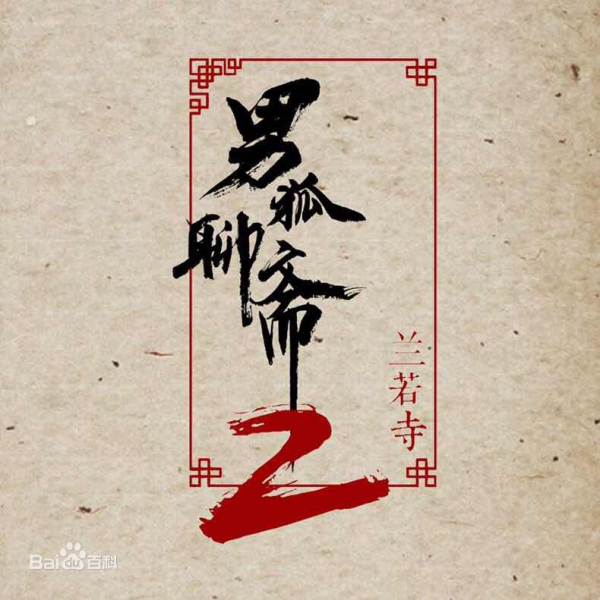 男狐聊斋2
兰若寺
Bai du 百科